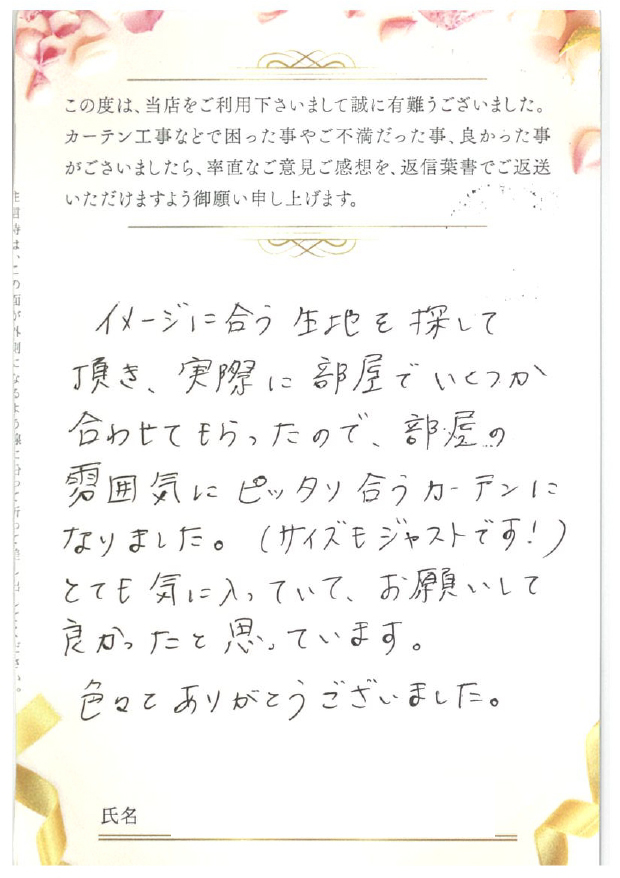 この度は、当店をご利用下さいまして誠に有難うございました。
カーテン工事などで困った事やご不満だった事、良かった事
がございましたら、率直なご意見ご感想を、返信葉書でご返送
いただけますよう御願い申し上げます。
イメージに合う生地を探して
頂き、実際に部屋でいくつか
合わせてもらったので、部屋の
雰囲気にピッタリ合うカーテンに
なりました。(サイズもジャストです!)
とても気に入っていて、お願いして
良かったと思っています。
色々とありがとうございました。
氏名